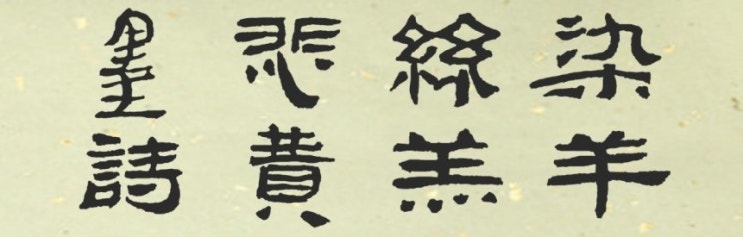 墨悲絲染
詩贊羔羊